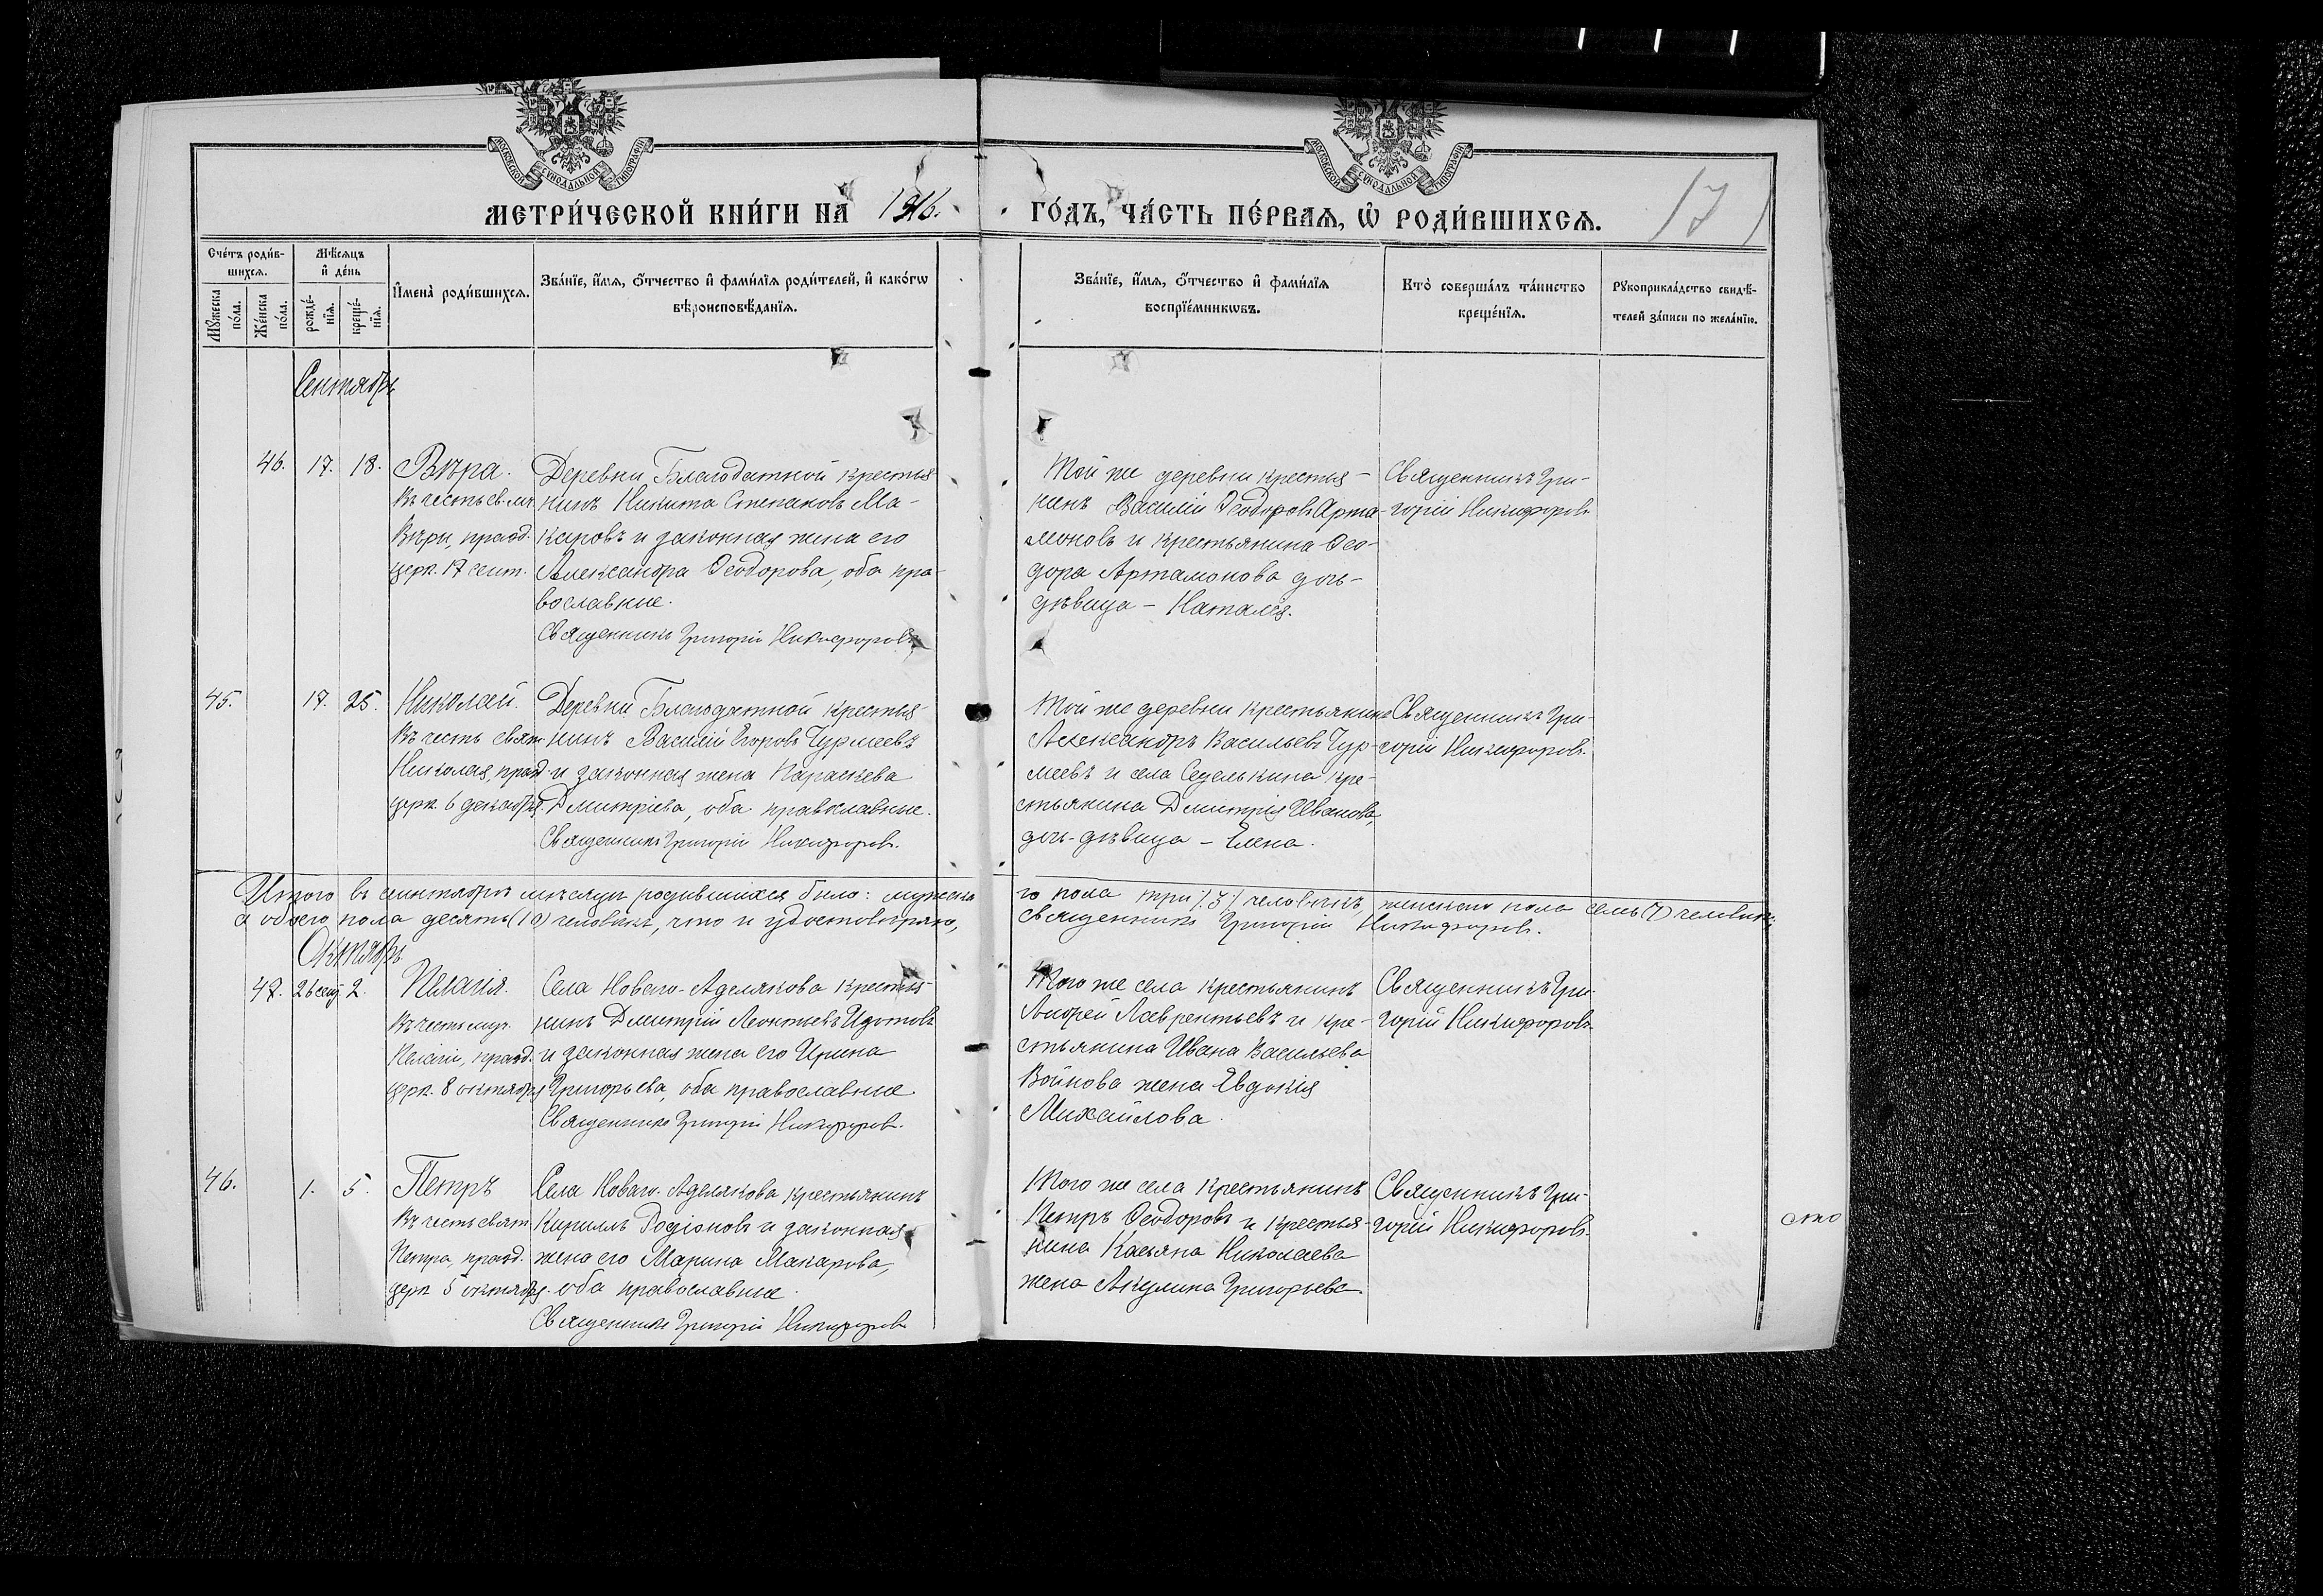 МОСКОВСКОЙ СѴНОДАЛЬНОЙ ТИПОГРАФІИ
МОСКОВСКОЙ СѴНОДАЛЬНОЙ ТИПОГРАФІИ
МЕТРИ́ЧЕСКОЙ КНИ́ГИ НА 1916. ГО́ДЪ, ЧА́СТЬ ПЕ́РВАЯ, Ѡ РОДИ́ВШИХСЯ.
17
Сче́тъ роди́в-
шихся.
Мꙋ́жеска по́ла.
Же́нска по́ла.
Мѣ́сяцъ
и҆ де́нь
рожде́-
нїя.
креще́-
нїя.
И҆мена̀ роди́вшихся.
Зва́нїе, и҆́мя, ѻ҆́тчество и҆ фами́лїя роди́телей, и҆ како́гѡ
вѣроисповѣ́данїя.
Зва́нїе, и҆́мя, ѻ҆́тчество и҆ фами́лїя
воспрїе́мникѡвъ.
Кто̀ соверша́лъ та́инство
креще́нїя.
Рꙋкоприкла́дство свидѣ́-
телей за́писи по жела́нїю.
Сентябрь
46. 17. 18.
Вѣра.
Въ честь св. муч.
Вѣры, празд.
церк. 17 сент.
Деревни Благодатной крестья
нинъ Никита Степановъ Ма-
каровъ и законная жена его
Александра Ѳеодорова, оба пра-
вославные.
Священникъ Григорій Никифоровъ
Той же деревни крестья-
нинъ Василій Ѳеодоровъ Арта-
моновъ и крестьянина Ѳео-
дора Артамонова дочь-
дѣвица - Наталія.
Священникъ Гри-
горій Никифоровъ
45. 17. 25.
Николай.
Въ честь свят.
Николая, празд.
церк. 6 декабря.
Деревни Благодатной крестья-
нинъ Василій Егоровъ Чурмеевъ
и законная жена Параскева
Дмитріева, оба православные.
Священникъ Григорій Никифоровъ.
Той же деревни крестьянинъ
Александръ Васильевъ Чур-
меевъ и села Седелькина кре-
стьянина Дмитрія Иванова,
дочь-дѣвица - Елена.
Священникъ Гри-
горій Никифоровъ.
Итого въ сентябрѣ мѣсяцѣ родившихся было: мужеска
го пола три /3/ человѣкъ, женскаго пола семь (7) человѣкъ;
а обоего пола десять (10) человѣкъ, что и удостовѣряю,
Священникъ Григорій Никифоровъ.
Октябрь.
47. 26 сент. 2.
Пелагія.
Въ честь муч.
Пелагіи, празд.
церк. 8 октября
Села Новаго-Аделякова крестья-
нинъ Дмитрій Леонтьевъ
и законная жена его Ирина
Григорьева, оба православные
Священникъ Григорій Никифоровъ.
Того же села крестьянинъ
Андрей Лаврентьевъ и кре-
стьянина Ивана Васильева
Войнова жена Евдокія
Михайлова.
Священникъ Гри-
горій Никифоровъ.
46. 1. 5.
Петръ
Въ честь свят.
Петра, празд.
церк 5 октября.
Села Новаго-Аделякова крестьянинъ
Кириллъ Родіоновъ и законная
жена его Марина Макарова,
оба православные.
Священникъ Григорій Никифоровъ
Того же села крестьянинъ
Петръ Ѳеодоровъ и крестья-
нина Касьяна Николаева
жена Акулина Григорьева
Священникъ Гри-
горій Никифоровъ.
сто